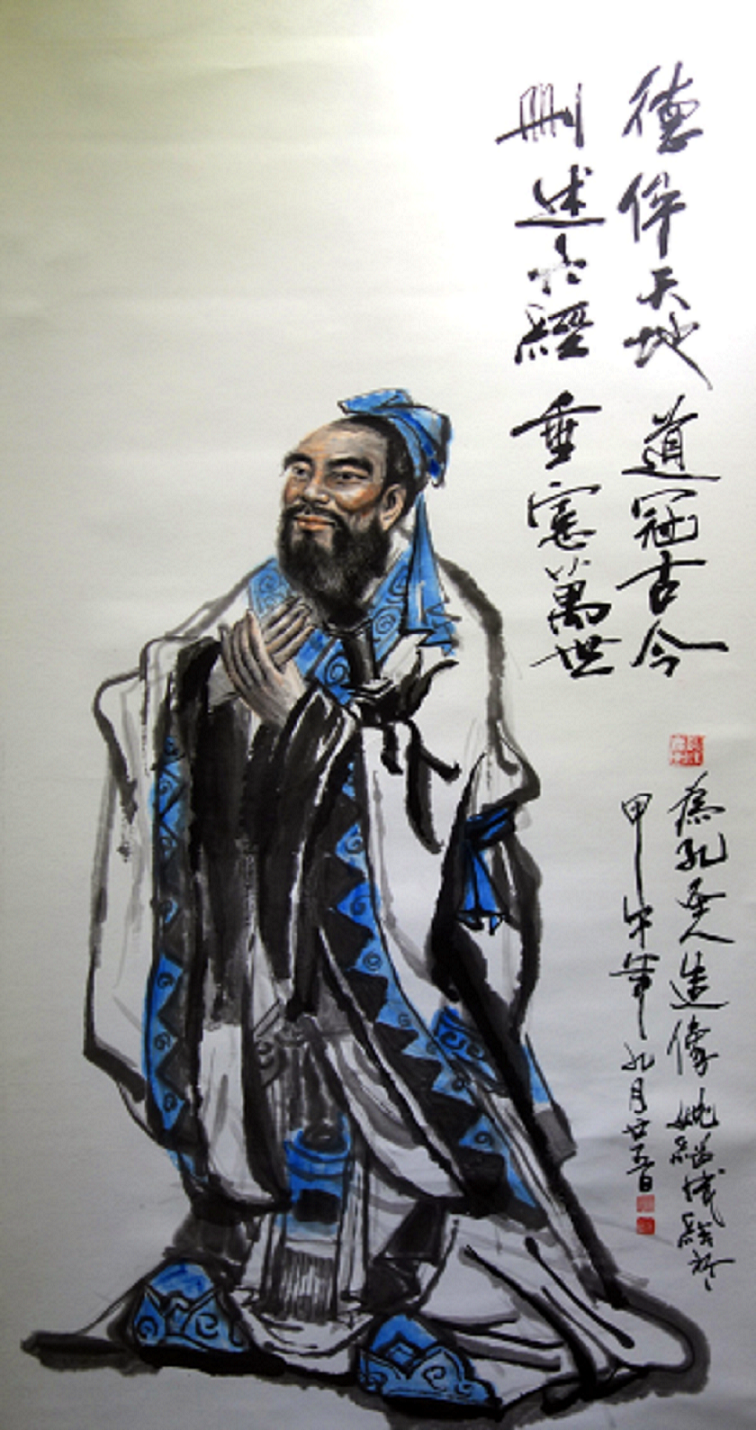 德侔天地 道冠古今
删述六經 垂憲萬世
為孔聖人造像 姚
甲午年九月廿五日